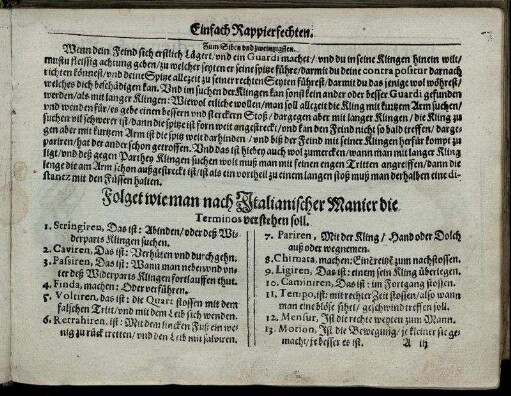 Einfach Rappierfechten.
Zum Siben und zweintzigsten.
Wenn dein Feind sich erstlich Lägert / und ein Guardi machet / und du in seine Klingen hinein wilt /
mustu fleissig achtung geben / zu welcher seyten er seine spitze führe / darmit du deine contrapositur darnach
richten könnest / und deine Spitze allezeit zu seiner rechten Seyten führest / darmit du das jenige wol wöhrest /
welches dich beschädigen kan. Und im suchen der Klingen kan sonst kein ander oder besser Guardi gefunden
werden / als mit langer Klingen: Wiewol etliche wollen / man soll allezeit die Kling mit kurtzem Arm suchen /
und wenden für / es gebe einen bessern und sterckern Stoß / dargegen aber mit langer Klingen / die Kling zu
suchen vil schwerer ist / dann die spitze ist forn weit angestreckt / und kan den Feind nicht so bald treffen / darge-
gen aber mit kurtzem Arm ist die spitz weit darhinden / und biß der Feind mit seiner Klingen herfür kompt zu
pariren / hat der ander schon getroffen. Und das ist hieben auch wol zumercken / wann man mit langer Kling
ligt / und deß gegen Parthey Klingen suchen wolt muß man mit seinen engen Tritten angreiffen / dann die
lenge die am Arm schon außgestreckt ist / ist als ein vortheil zu einem langen stoß muß man derhalben eine di-
stantz mit den Füssen halten.
Folget wie man nach Italianischer Manier die
Terminos verstehen soll.
1. Stringiren, Das ist: Abinden / oder deß Wi-
derparts Klingen suchen.
2. Caviren, Das ist: Verhüten und durchgehn.
3. Passiren, Das ist: Wann man neben und un-
ter deß Widerparts Klingen fortlauffen thut.
4. Finda, machen: Oder verführen.
5. Voltiren, das ist: die Quart stossen mit dem
falschen Tritt / und mit dem Leib sich wenden.
6. Retrahiren, ist: Mit dem lincken Fuß ein we-
nig zu rück tretten / und den Leib mit salviren.
7. Pariren, Mit der Kling / Hand oder Dolch
auß oder wegnemen.
8. Chimata, machen: Ein Creütz zum nachstossen.
9. Ligiren, Das ist: einem sein Kling überlegen.
10. Caminiren, Das ist: im fortgang stossen.
11. Tempo, ist: mit rechter Zeit stossen / also wann
man eine blöse sihet / geschwind treffen soll.
12. Mensur, Ist die rechte weyten zum Mann.
13. Motion, Ist die Bewegung / je kleiner sie ge-
macht / je besser es ist.
A iij